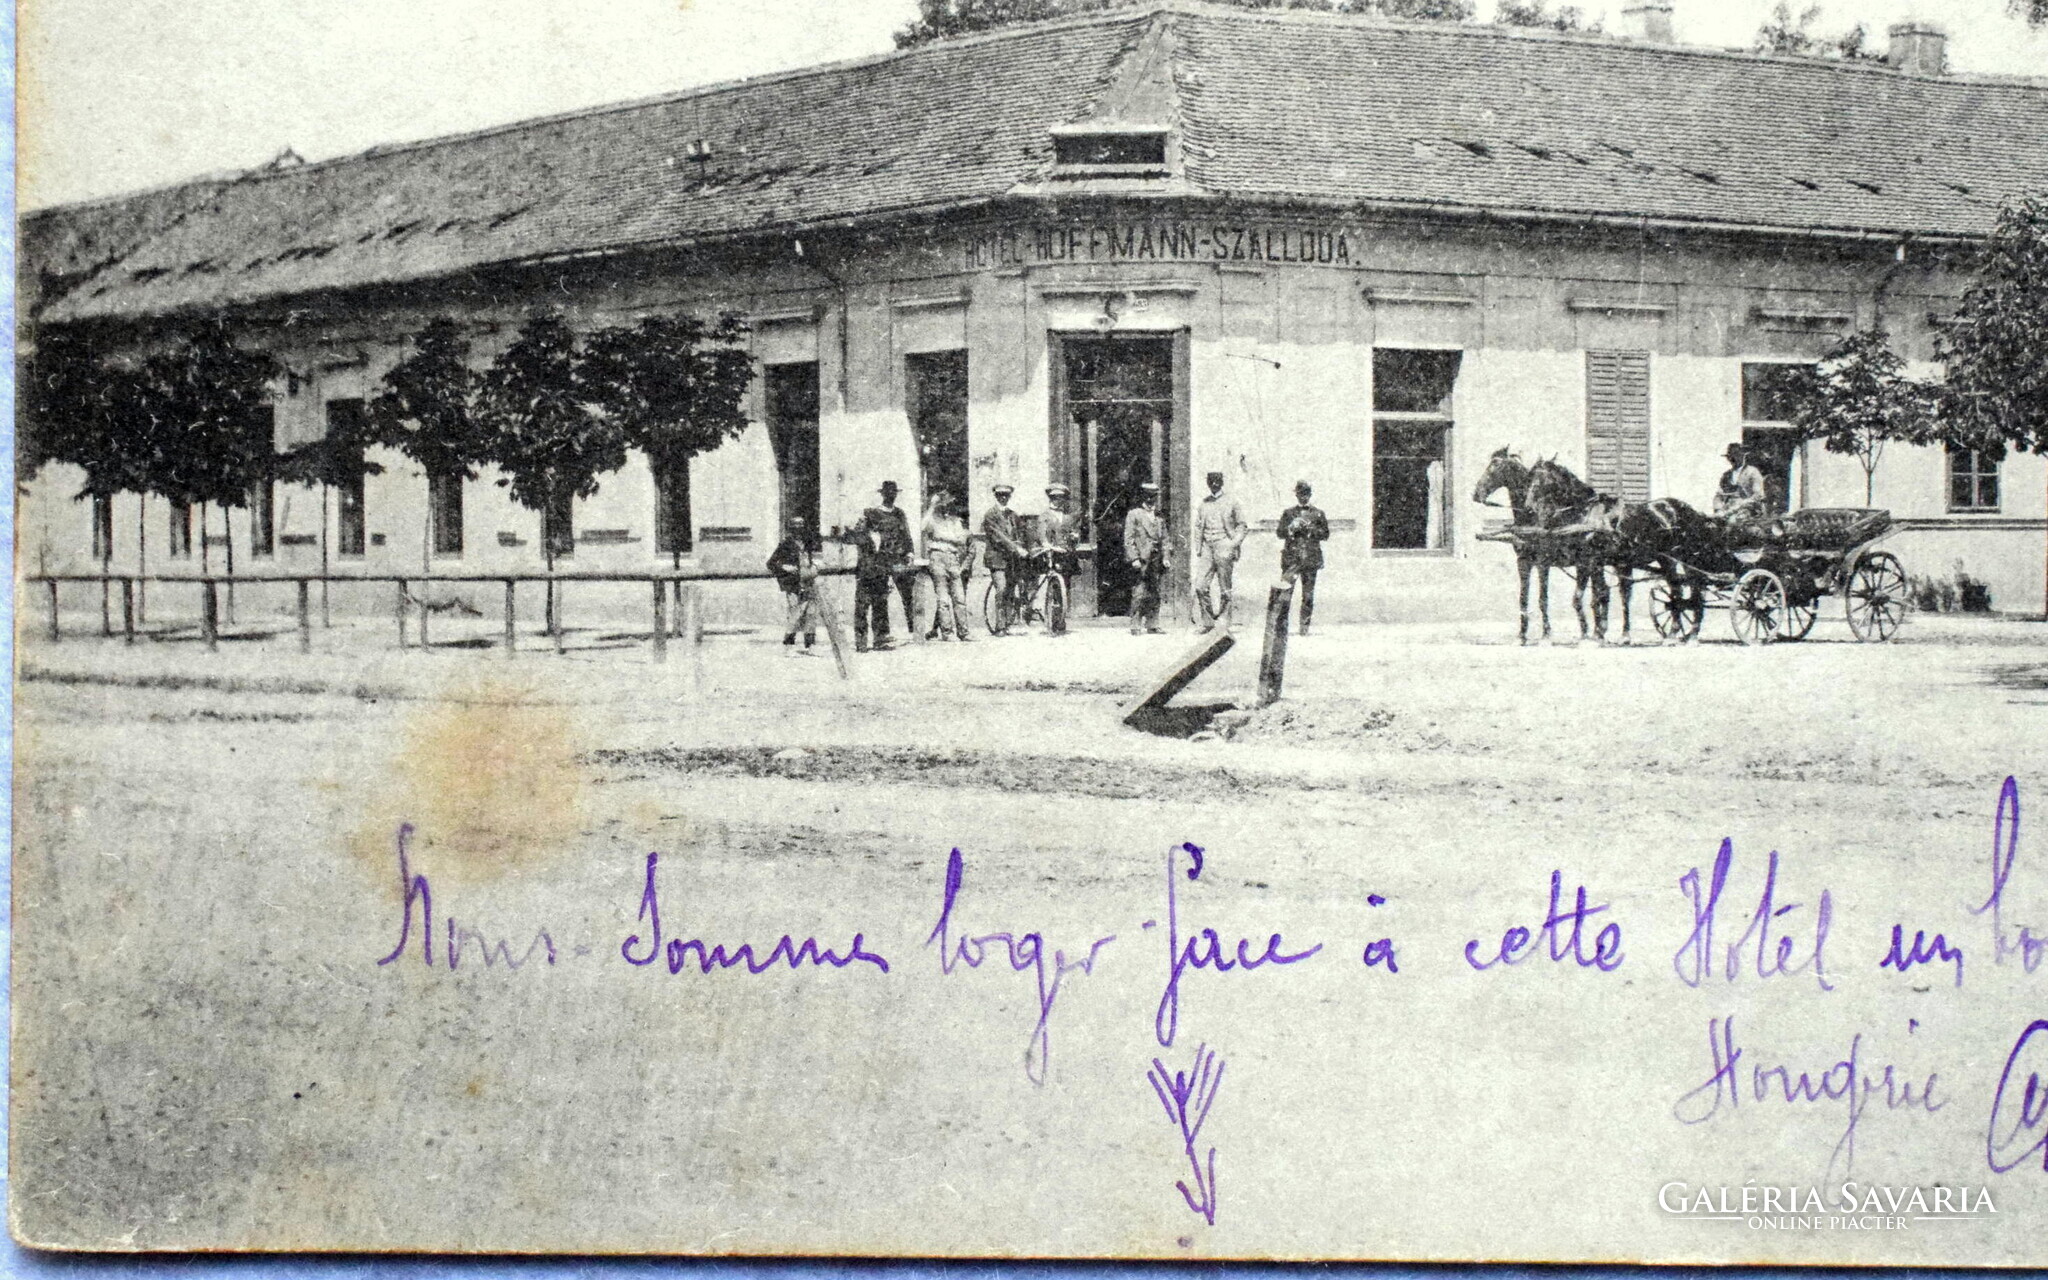 HOTEL-HOFFMANN-SZÁLLODA.
Nous sommes loger face à cette Hôtel un
Hongrie
GALÉRIA SAVARIA
ONLINE PIACTÉR